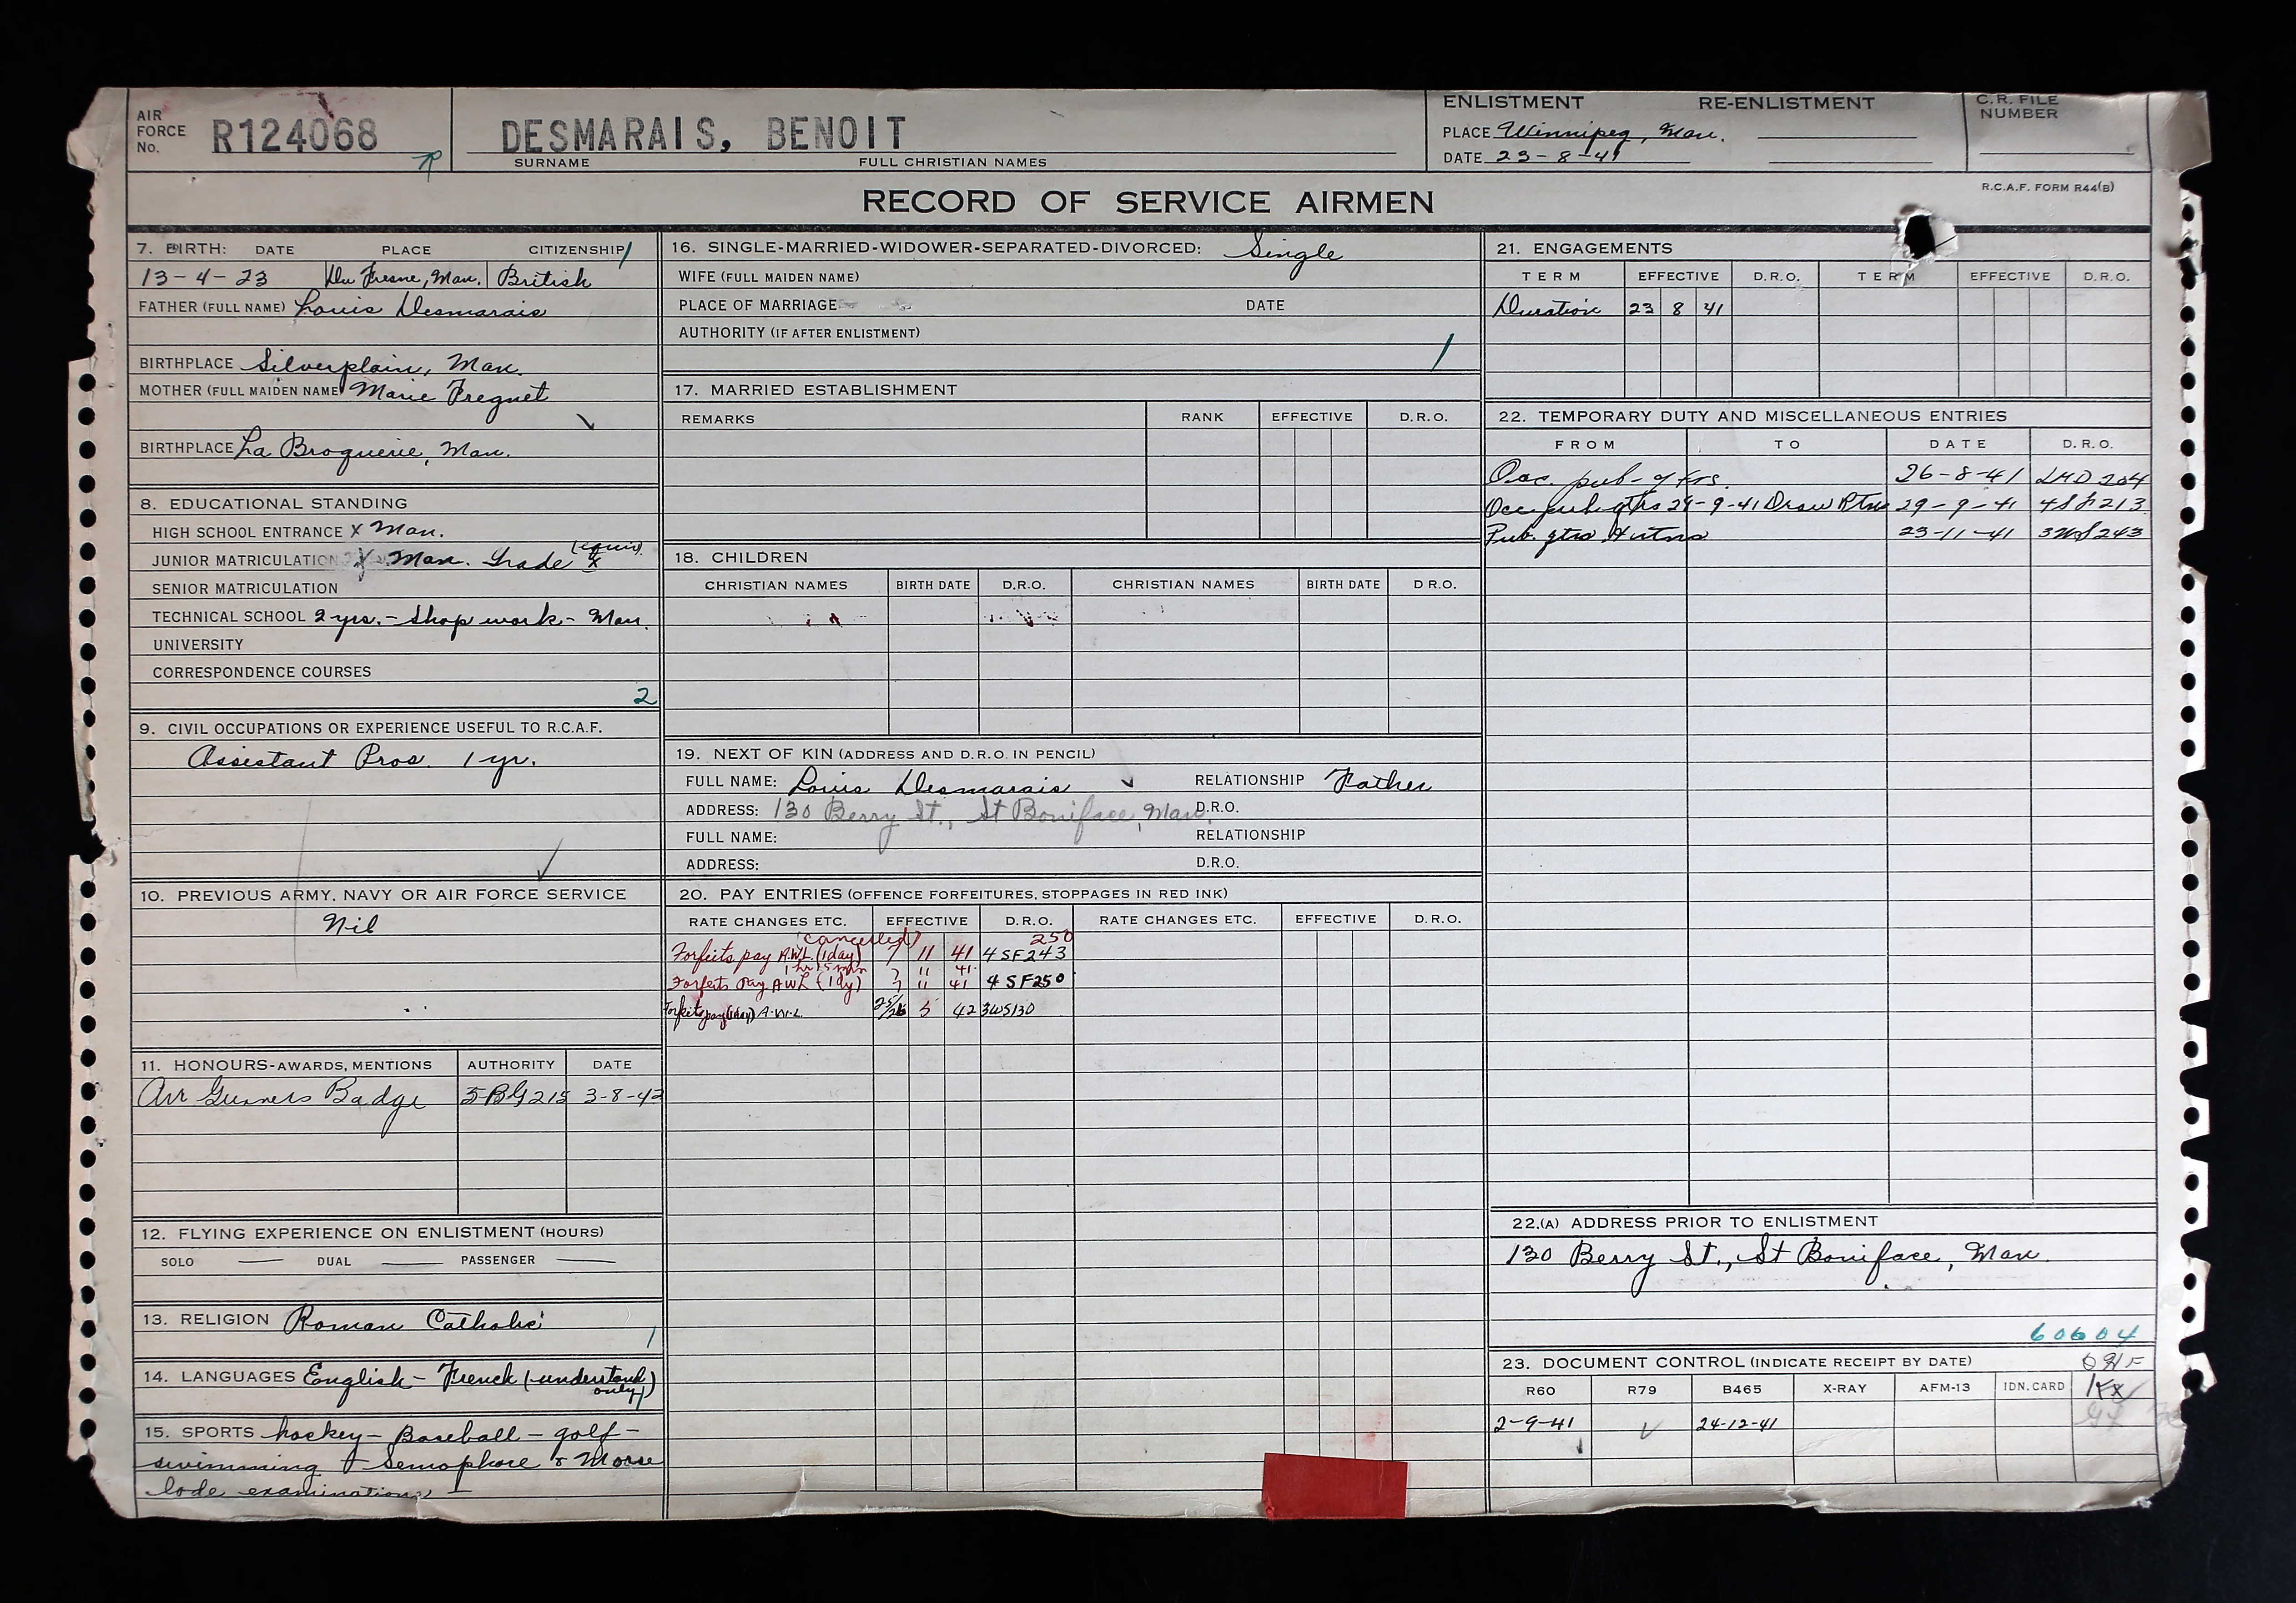 AIR FORCE No. R124068
DESMARAIS, BENOIT
SURNAME FULL CHRISTIAN NAMES
ENLISTMENT RE-ENLISTMENT
PLACE Winnipeg, Man.
DATE 23-8-41
C.R. FILE NUMBER
RECORD OF SERVICE AIRMEN
R.C.A.F. FORM R44(B)
7. BIRTH: DATE PLACE CITIZENSHIP
13-4-23 Du Fresne, Man. British
FATHER (FULL NAME) Louis Desmarais
BIRTHPLACE Silverplain, Man.
MOTHER (FULL MAIDEN NAME) Marie Freguet
BIRTHPLACE La Broquerie, Man.
8. EDUCATIONAL STANDING
HIGH SCHOOL ENTRANCE X Man.
JUNIOR MATRICULATION Man. Grade X (equiv)
SENIOR MATRICULATION
TECHNICAL SCHOOL 2 yrs. - Shop work - Man.
UNIVERSITY
CORRESPONDENCE COURSES
2
9. CIVIL OCCUPATIONS OR EXPERIENCE USEFUL TO R.C.A.F.
Assistant Pros. 1 yr.
10. PREVIOUS ARMY, NAVY OR AIR FORCE SERVICE
Nil
11. HONOURS-AWARDS, MENTIONS AUTHORITY DATE
Air Gunners Badge 5BG215 3-8-42
12. FLYING EXPERIENCE ON ENLISTMENT (HOURS)
SOLO — DUAL — PASSENGER —
13. RELIGION Roman Catholic
1
14. LANGUAGES English - French (understand only)
15. SPORTS hockey - Baseball - golf -
swimming & Semophore & Morse
Code examinations
16. SINGLE-MARRIED-WIDOWER-SEPARATED-DIVORCED: Single
WIFE (FULL MAIDEN NAME)
PLACE OF MARRIAGE DATE
AUTHORITY (IF AFTER ENLISTMENT)
17. MARRIED ESTABLISHMENT
REMARKS RANK EFFECTIVE D.R.O.
18. CHILDREN
CHRISTIAN NAMES BIRTH DATE D.R.O. CHRISTIAN NAMES BIRTH DATE D R.O.
19. NEXT OF KIN (ADDRESS AND D.R.O. IN PENCIL)
FULL NAME: Louis Desmarais RELATIONSHIP Father
ADDRESS: 130 Berry St., St Boniface, Man. D.R.O.
FULL NAME: RELATIONSHIP
ADDRESS: D.R.O.
20. PAY ENTRIES (OFFENCE FORFEITURES, STOPPAGES IN RED INK)
RATE CHANGES ETC. EFFECTIVE D.R.O. RATE CHANGES ETC. EFFECTIVE D.R.O.
(cancelled) 250
Forfeits pay A.W.L. (1day) 7 11 41 4SF243
1 hr 15 min 7 11 41
Forfeits Pay AWL (1dy) 7 11 41 4SF250
Forfeits pay (1day) A.W.L. 25/26 5 42 3WS130
21. ENGAGEMENTS
TERM EFFECTIVE D.R.O. TERM EFFECTIVE D.R.O.
Duration 23 8 41
22. TEMPORARY DUTY AND MISCELLANEOUS ENTRIES
FROM TO DATE D.R.O.
Occ. pub. qtrs. 26-8-41 204
Occ pub qtrs 29-9-41 Draw Rtns 29-9-41 213
Pub. qtrs 23-11-41 243
22.(A) ADDRESS PRIOR TO ENLISTMENT
130 Berry St., St Boniface, Man.
60604
23. DOCUMENT CONTROL (INDICATE RECEIPT BY DATE)
R60 R79 B465 X-RAY AFM-13 IDN. CARD
2-9-41 ✓ 24-12-41